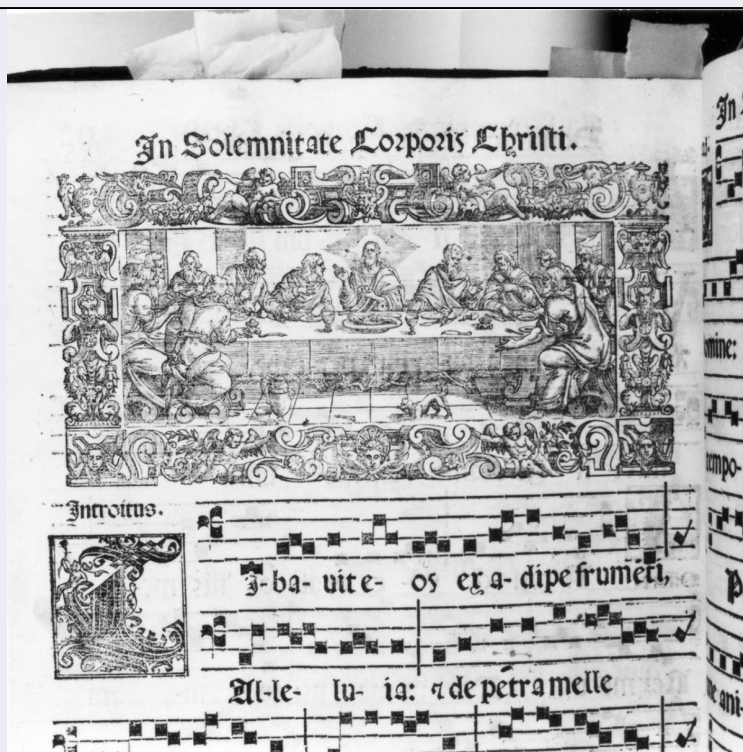 In Solemnitate Corporis Chriſti.
Introitus.
C I-ba-uit e- os ex a-dipe frumēti,
Al-le- lu- ia: ⁊ de petra melle
In
omine:
empo-
ani-